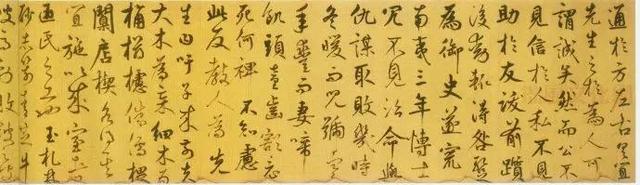 通於方左右具宜
先生之於為人可
謂誠矣然而公不
見信於人私不見
助於友跋前躓
後動輒得咎暫
為御史遂竄
南夷三年博士
冗不見治命與
仇謀取敗幾時
冬暖而兒號寒
年豐而妻啼
飢頭童齒豁竟
死何裨不知慮
此反教人為先
生曰吁子來前夫
大木為杗細木為
桷欂櫨侏儒椳
闑扂楔各得其
宜施以成室者匠
氏之工也玉札丹
砂赤箭青芝牛
溲馬勃敗鼓